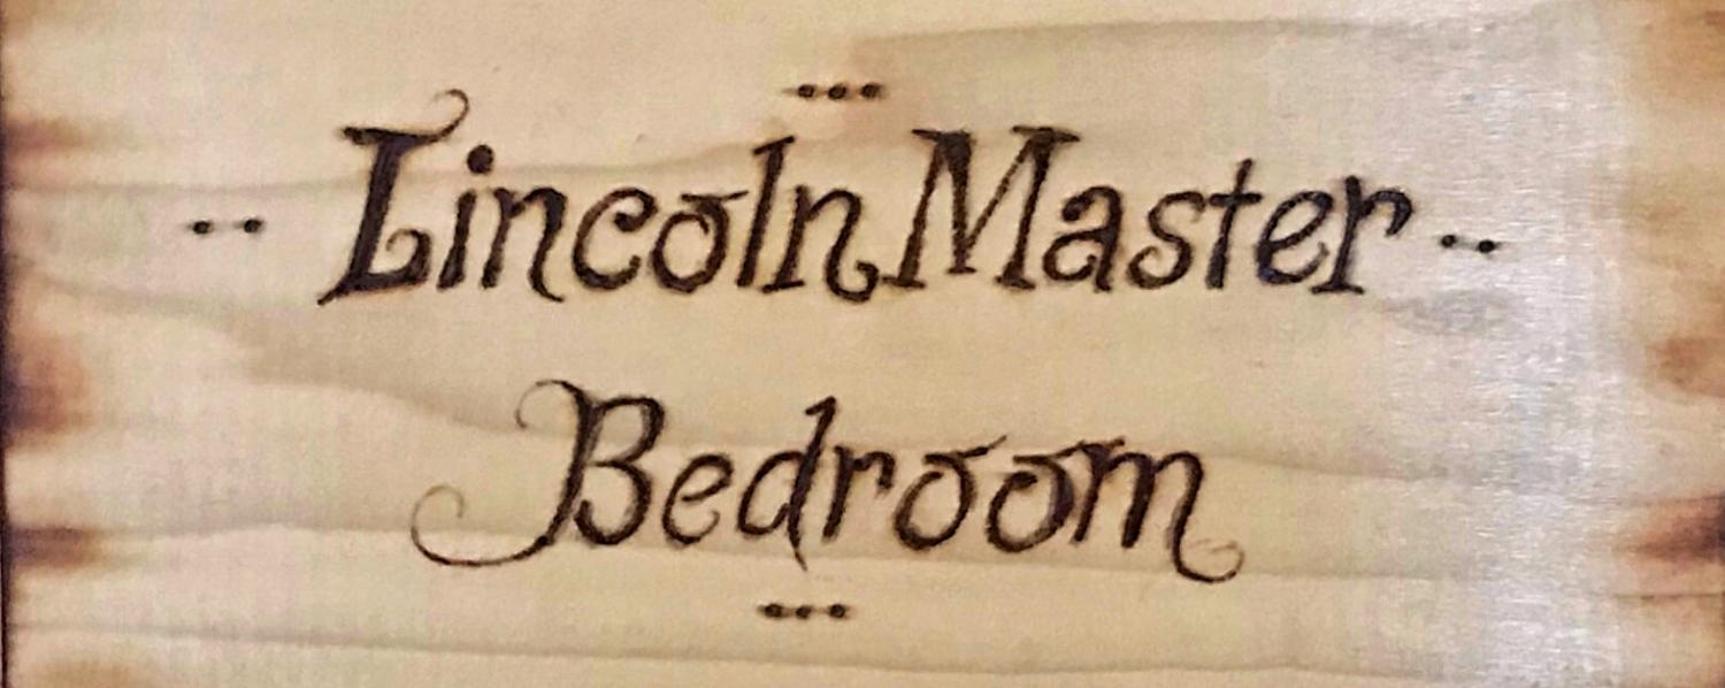 Lincoln Master
Bedroom